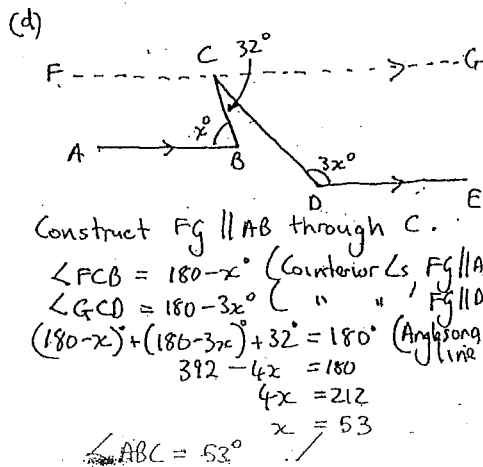 (d)
C 32°
F G
x°
A B
3x°
D E
Construct FG || AB through C.
∠FCB = 180-x° (Cointerior ∠s, FG||A
∠GCD = 180-3x° ( " " , FG||D
(180-x)°+(180-3x)°+32°=180° (Angles on a line
392 - 4x = 180
4x = 212
x = 53
∠ABC = 53°